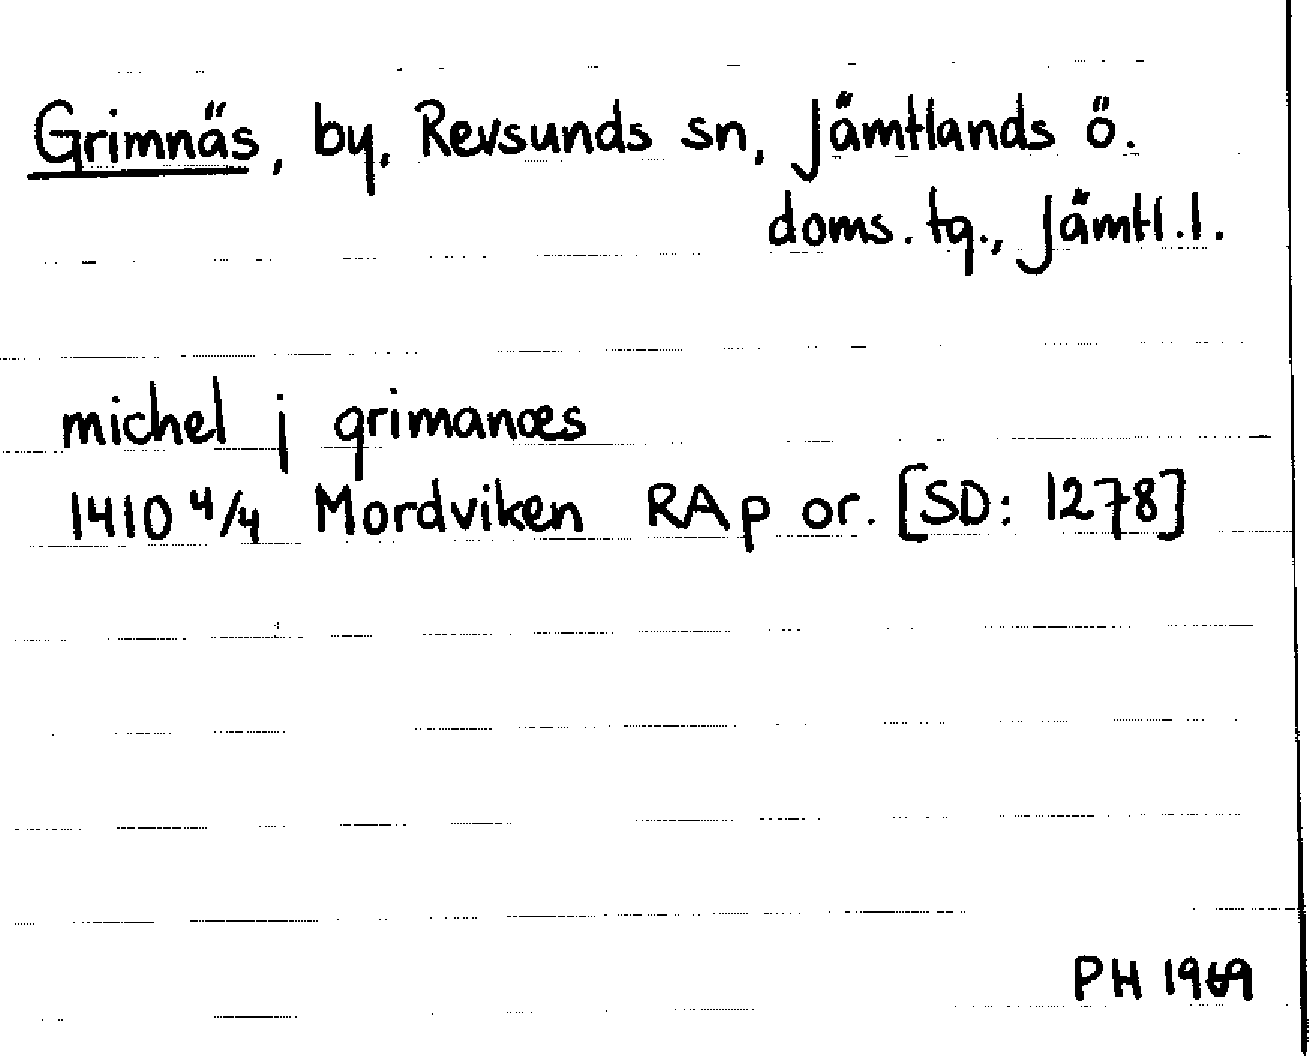 Grimnäs, by, Revsunds sn, Jämtlands ö.
doms. tg., Jämtl.l.
michel j grimanæs
1410 4/4 Mordviken RAp or. [SD: 1278]
PH 1969